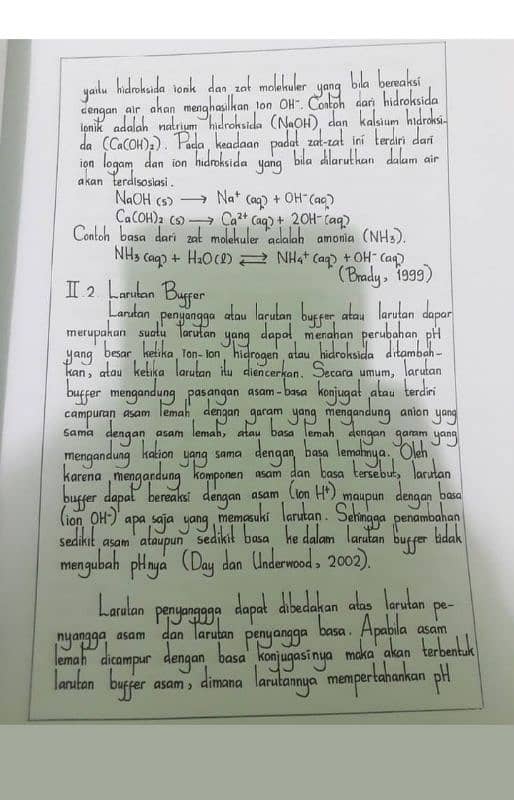 yaitu hidroksida ionik dan zat molekuler yang bila bereaksi
dengan air akan menghasilkan ion OH⁻. Contoh dari hidroksida
ionik adalah natrium hidroksida (NaOH) dan kalsium hidroksi-
da (Ca(OH)₂). Pada keadaan padat zat-zat ini terdiri dari
ion logam dan ion hidroksida yang bila dilarutkan dalam air
akan terdisosiasi.
NaOH (s) → Na⁺ (aq) + OH⁻ (aq)
Ca(OH)₂ (s) → Ca²⁺ (aq) + 2OH⁻ (aq)
Contoh basa dari zat molekuler adalah amonia (NH₃).
NH₃ (aq) + H₂O (l) ⇌ NH₄⁺ (aq) + OH⁻ (aq)
(Brady, 1999)
II.2. Larutan Buffer
Larutan penyangga atau larutan buffer atau larutan dapar
merupakan suatu larutan yang dapat menahan perubahan pH
yang besar ketika Ion-Ion hidrogen atau hidroksida ditambah-
kan, atau ketika larutan itu diencerkan. Secara umum, larutan
buffer mengandung pasangan asam-basa konjugat atau terdiri
campuran asam lemah dengan garam yang mengandung anion yang
sama dengan asam lemah, atau basa lemah dengan garam yang
mengandung kation yang sama dengan basa lemahnya. Oleh
karena mengandung komponen asam dan basa tersebut, larutan
buffer dapat bereaksi dengan asam (ion H⁺) maupun dengan basa
(ion OH⁻) apa saja yang memasuki larutan. Sehingga penambahan
sedikit asam ataupun sedikit basa ke dalam larutan buffer tidak
mengubah pHnya (Day dan Underwood, 2002).
Larutan penyanggga dapat dibedakan atas larutan pe-
nyangga asam dan larutan penyangga basa. Apabila asam
lemah dicampur dengan basa konjugasinya maka akan terbentuk
larutan buffer asam, dimana larutannya mempertahankan pH